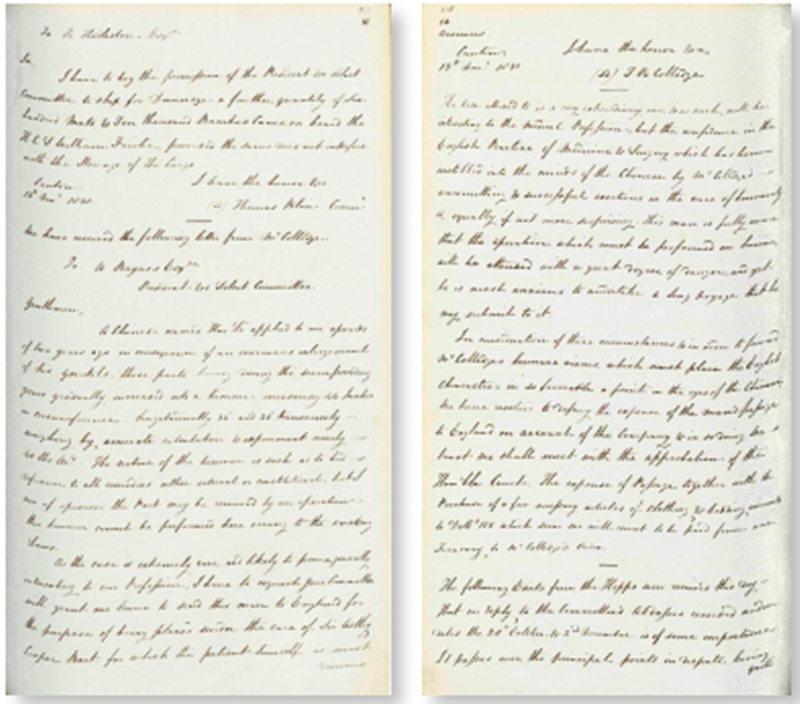 To R Hudleston Esqre
Sir,
I have to beg the permission of the President &c Select
Committee to ship for Demurage a further quantity of
hundred Mats & Ten thousand Canes on board the
H.C.S. William Fairlie, provided the same does not interfere
with the Stowage of the Cargo
Canton I have the honor &ca
1830. (Sd) Thomas
We have received the following letter from Mr Colledge.
To W Baynes Esqre
President &c Select Committee
Gentlemen,
A Chinese named Hoo Loo applied to me upwards
of two years ago in consequence of an enormous enlargement
of his genitals, these parts having during the
years gradually increased into a tumour measuring 40 Inches
in circumference longitudinally 36 and 26 transversely
weighing by accurate calculation & experiment nearly
The nature of the tumour is such as to bid
defiance to all remedies either internal or constitutional, but I
am of opinion the Part may be removed by an operation
this however cannot be performed here owing to the existing
Laws.
As the case is extremely rare and likely to prove greatly
interesting to our Profession, I have to request your Committee
will grant me leave to send this man to England for
the purpose of being placed under the care of Sir Astley
Cooper Bart for which the patient himself is most
anxious
anxious
Canton I have the honor &ca
1830 (Sd) T R Colledge
The case alluded to is a very extraordinary one, & as such, will be
interesting to the Medical Profession, but the confidence in the
English Practice of Medicine & Surgery which has been
instilled into the minds of the Chinese by Mr Colledge's
unremitting & successful exertions in the cause of humanity
is equally if not more surprising. This man is fully aware
that the operation which must be performed on him
will be attended with a great degree of danger, and yet
he is most anxious to undertake a long voyage that he
may submit to it.
In consideration of these circumstances & in order to forward
Mr Colledge's humane views, which must place the English
character in so favorable a point in the eyes of the Chinese
We have resolved to defray the expense of the man's passage
to England on account of the Company & in so doing we
trust we shall meet with the approbation of the
Honble Court. The expense of Passage together with the
Purchase of a few necessary articles of clothing & bedding amounts
to which sum we will direct to be paid from our
Treasury, to Mr Colledge's order.
The following Edicts from the Hoppo were received this day.
That in reply to the Committee's Addresses received
dated the 20th October & 2nd December is of some importance
It passes over the principal points in dispute having